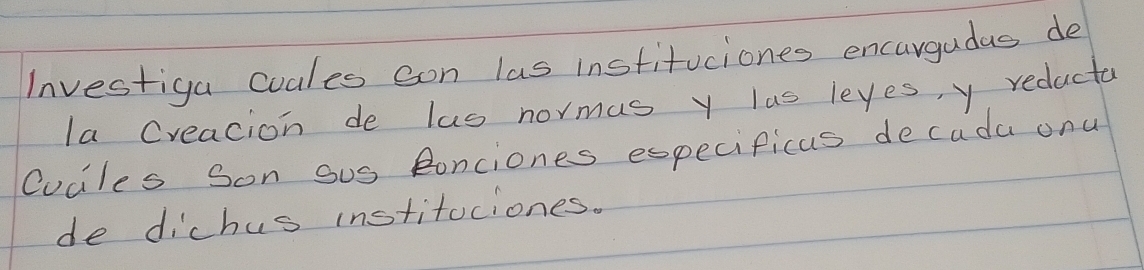 Investiga cuales son las instituciones encargadas de
la creación de las normas y las leyes, y redacta
cuáles son sus funciones especificas de cada una
de dichas instituciones.